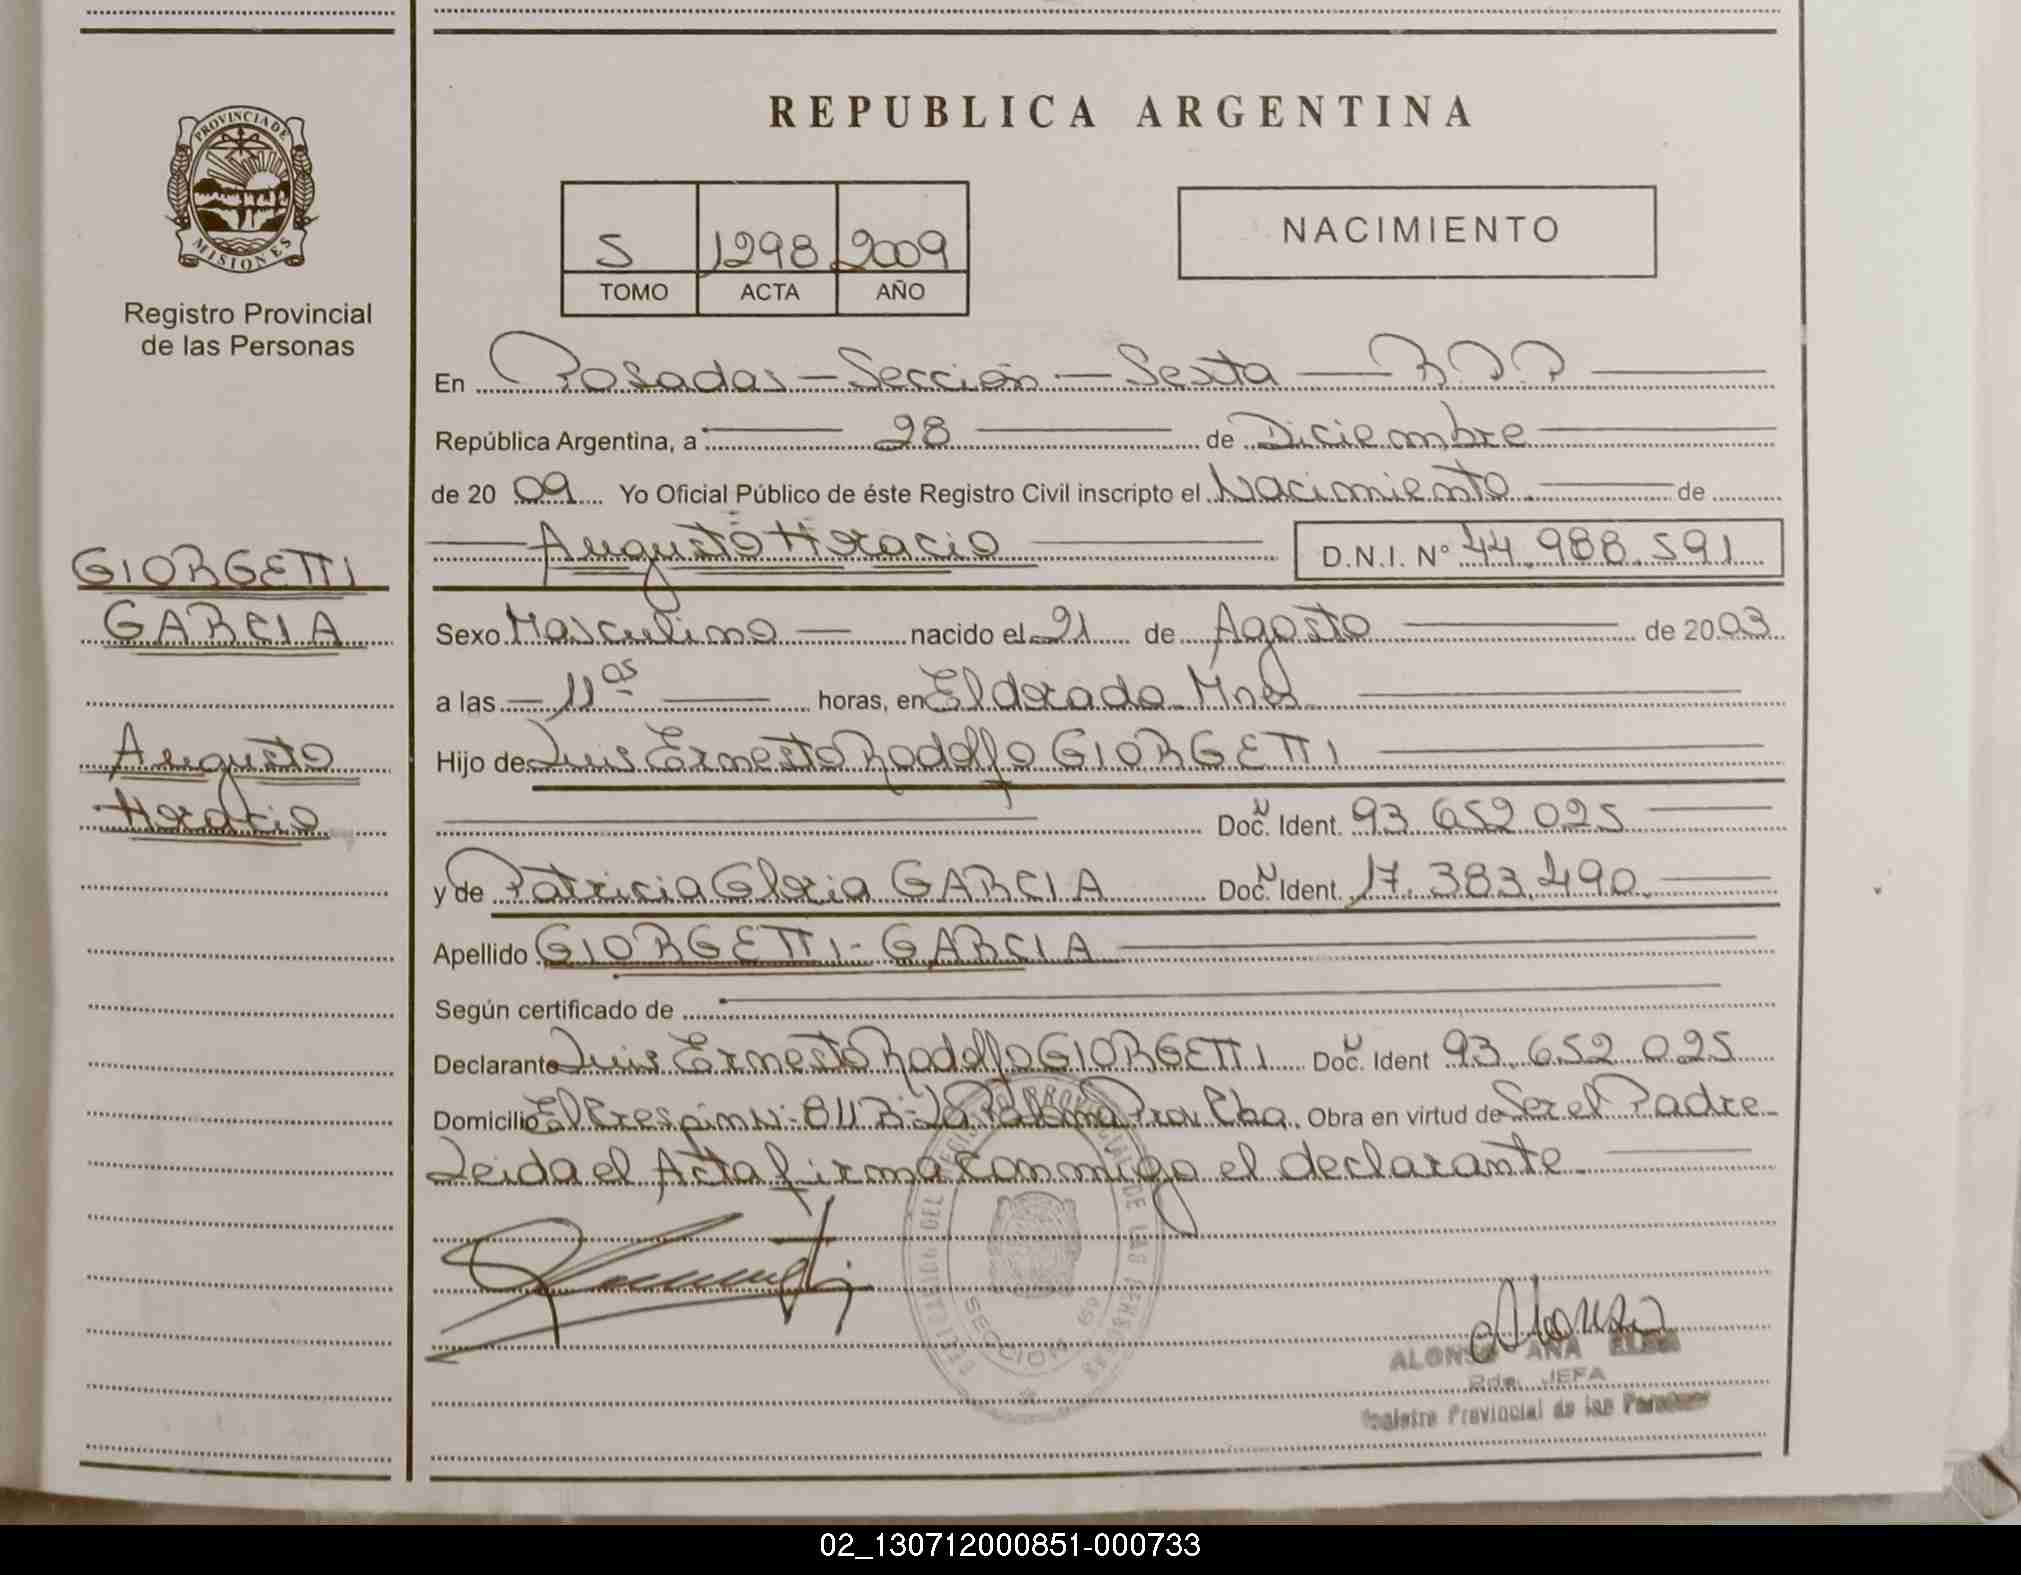 REPUBLICA ARGENTINA
PROVINCIA DE
MISIONES
Registro Provincial
de las Personas
5 1298 2009
TOMO ACTA AÑO
NACIMIENTO
En Posadas - Sección - Sexta - R.P.P
República Argentina, a 28 de Diciembre
de 2009 Yo Oficial Público de éste Registro Civil inscripto el Nacimiento de
Augusto Horacio D.N.I. Nº 44.988.591
GIORGETTI
GARCIA
Augusto
Horacio
Sexo Masculino nacido el 21 de Agosto de 2003
a las 11 as horas, en Eldorado Mnes
Hijo de Luis Ernesto Rodolfo GIORGETTI
Doc. N Ident. 93 652 025
y de Patricia Gloria GARCIA Doc. N Ident. 17.383.490
Apellido GIORGETTI - GARCIA
Según certificado de
Declarante Luis Ernesto Rodolfo GIORGETTI Doc. N Ident 93 652 025
Domicilio El Crespin N: 811 B: La Paloma Prov Cba. Obra en virtud de Ser el Padre
Leida el Acta firma Conmigo el declarante
SECCION 6º
ALONSO ANA ELSA
JEFA
Registro Provincial de las Personas
02_130712000851-000733